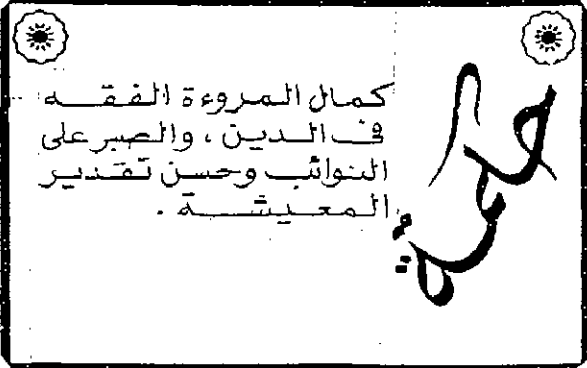 حكمة
كمال المروءة الفقه
في الدين ، والصبر على
النوائب وحسن تقدير
المعيشة .